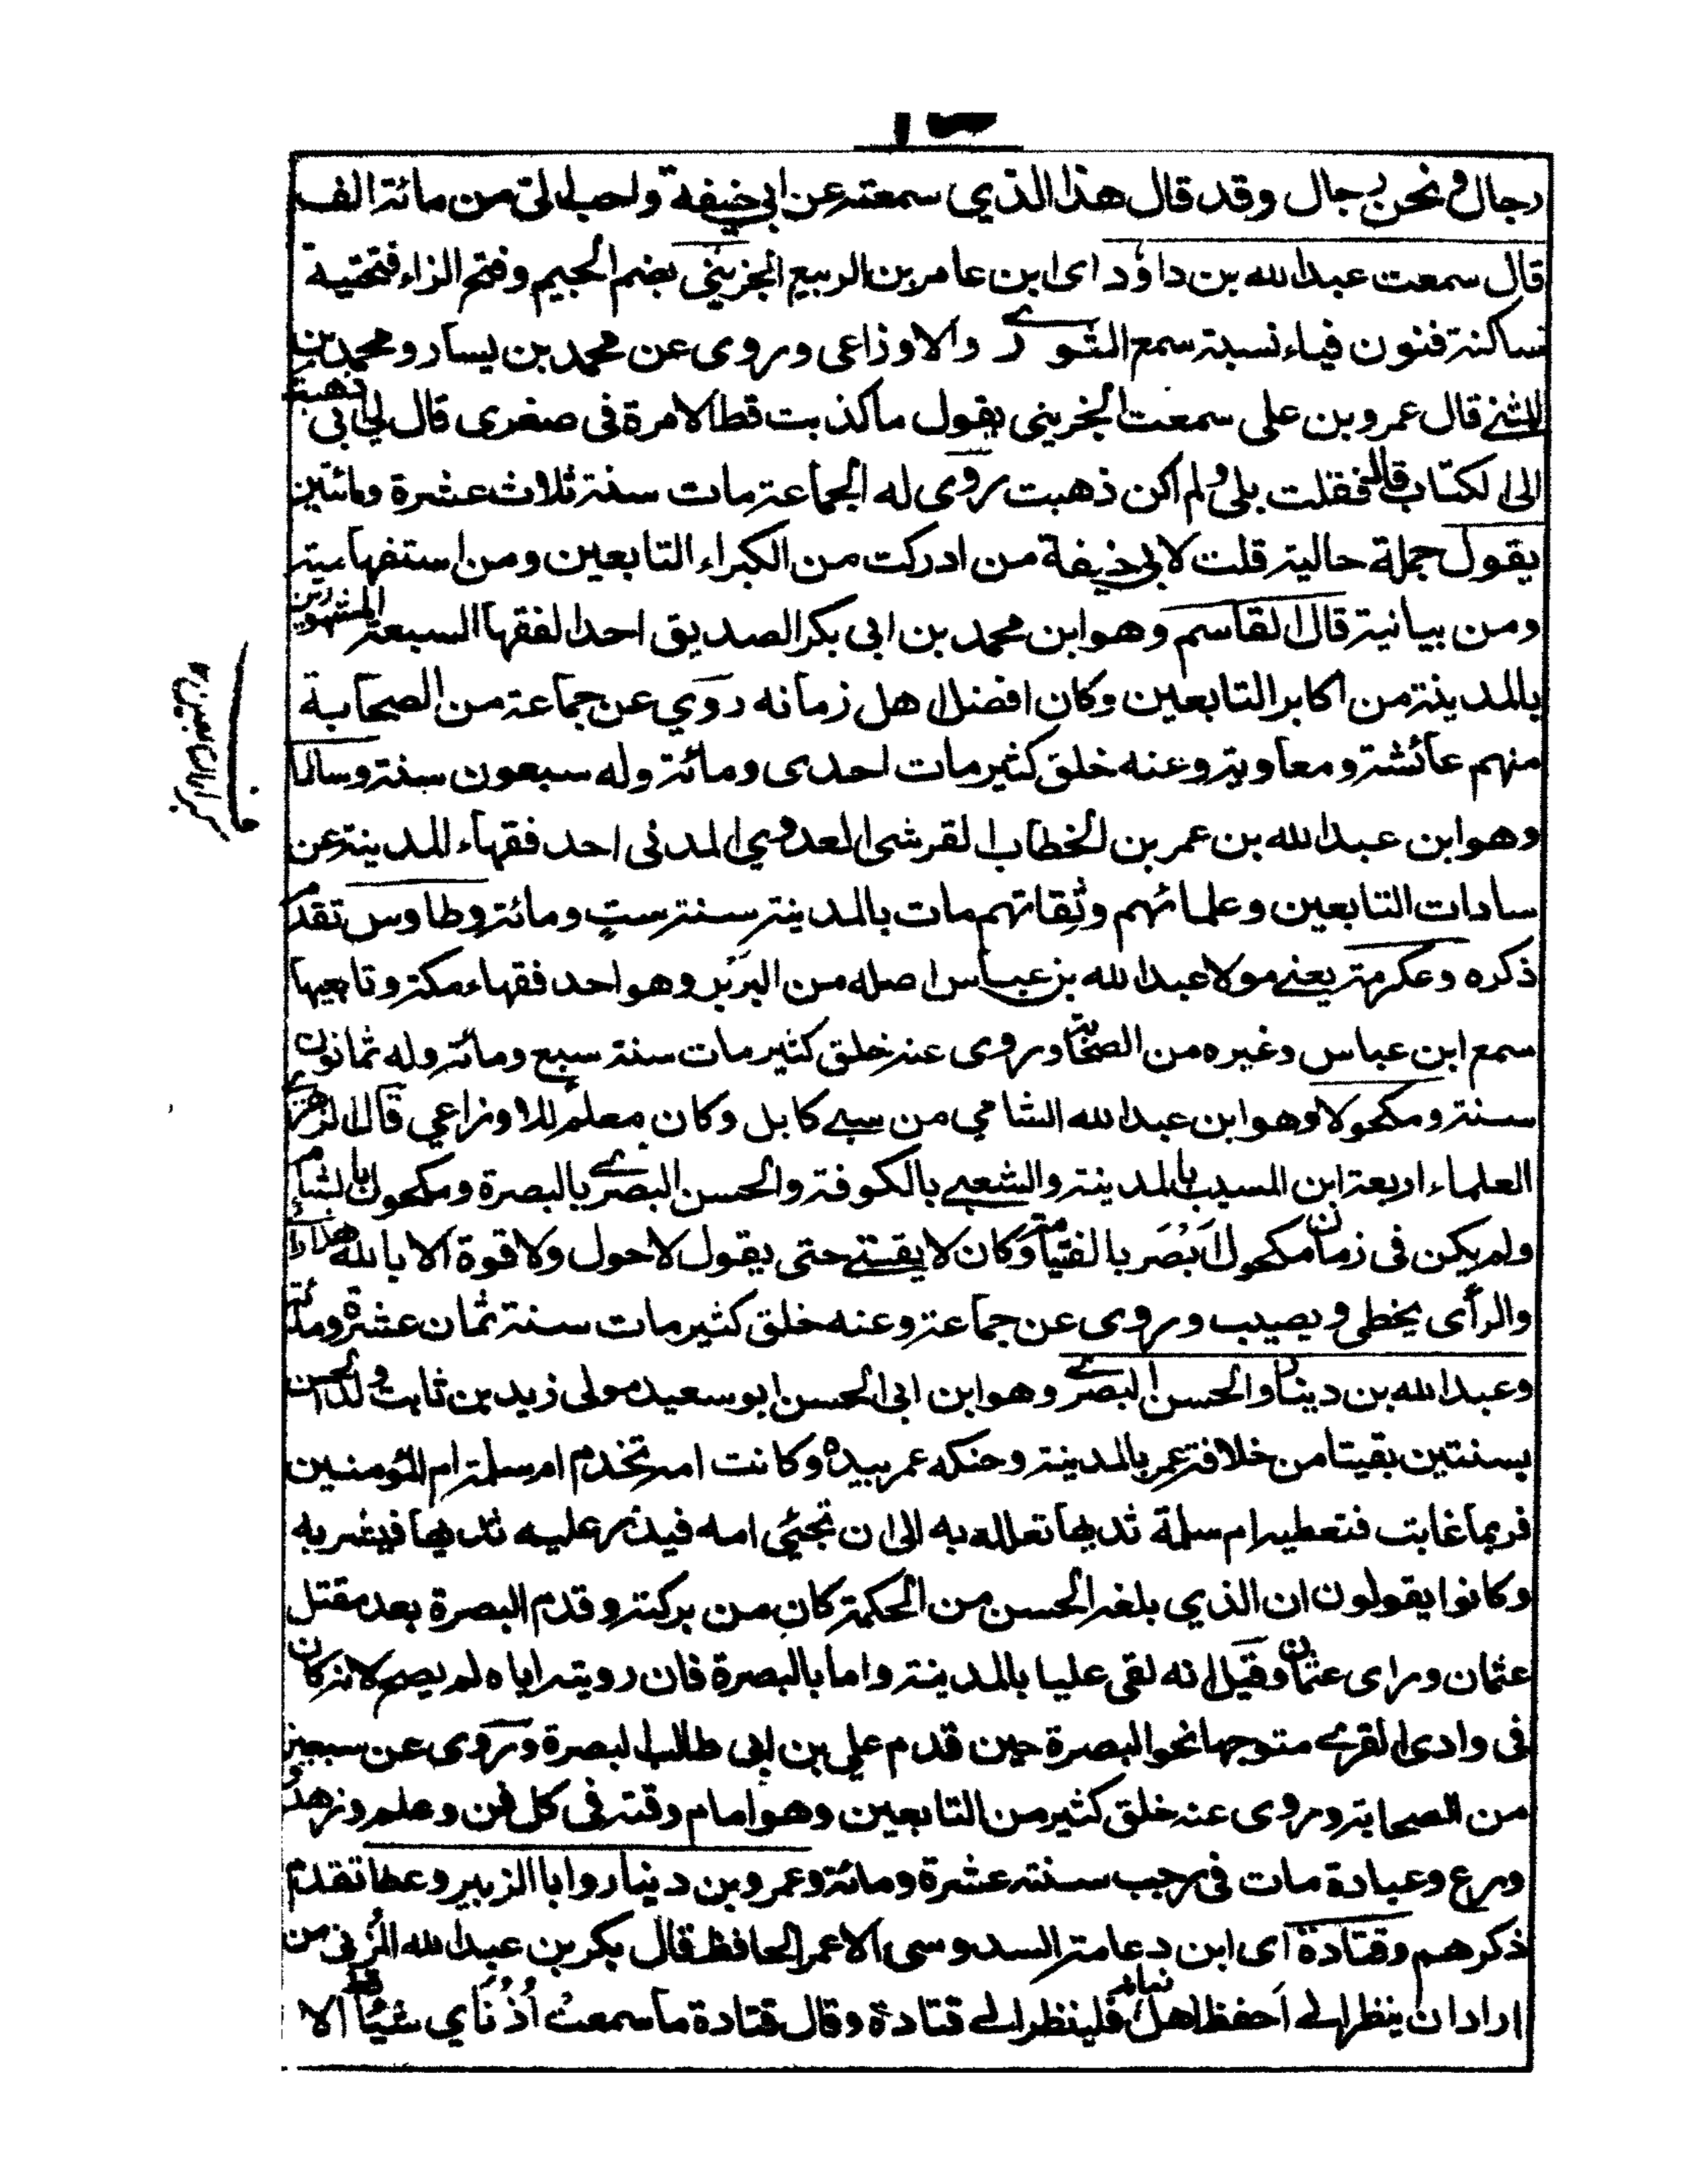 رجال ونحن رجال وقد قال هذا الذي سمعته عن ابي حنيفة واحب الى من مائة الف
قال سمعت عبد الله بن داؤد اى ابن عامر بن الربيع الجزيني بضم الجيم وفتح الزاء فتحتية
ساكنة فنون فياء نسبة سمع الثورے والاوزاعى وروى عن محمد بن يسار ومحمد بن
المثنے قال عمرو بن على سمعت الخرينى يقول ما كذبت قط الا مرة فى صغرى قال لى ابى ذهبت
الى الكتاب قال فقلت بلى ولم اكن ذهبت روى له الجماعة مات سنة ثلاث عشرة ومائتين
يقول جملة حالية قلت لابى حنيفة من ادركت من الكبراء التابعين ومن استفهامية
ومن بيانية قال القاسم وهو ابن محمد بن ابى بكر الصديق احد الفقها السبعة المشهورين
بالمدينة من اكابر التابعين وكان افضل اهل زمانه روي عن جماعة من الصحابة
منهم عائشة ومعاوية وعنه خلق كثير مات احدى ومائة وله سبعون سنة وسالما
وهو ابن عبد الله بن عمر بن الخطاب القرشى العدوي المدنى احد فقهاء المدينة عن
سادات التابعين وعلمائهم وثقاتهم مات بالمدينة سنة ست ومائة وطاوس تقدم
ذكره وعكرمة يعنے مولا عبد الله بن عباس اصله من البربر وهو احد فقهاء مكة وتابعيها
سمع ابن عباس وغيره من الصحابة وروى عنه خلق كثير مات سنة سبع ومائة وله ثمانون
سنة ومكحولا وهو ابن عبد الله الشامي من سبے كابل وكان معلم للاوزاعي قال الزهرے
العلماء اربعة ابن المسيب بالمدينة والشعبے بالكوفة والحسن البصرے بالبصرة ومكحول بالشام
ولم يكن فى زمان مكحول ابصر بالفتيا منه وكان لا يفتے حتى يقول لا حول ولا قوة الا بالله هذا رائ
والرأى يخطى ويصيب وروى عن جماعة وعنه خلق كثير مات سنة ثمان عشرة ومائة
وعبد الله بن دينار والحسن البصرے وهو ابن ابى الحسن ابو سعيد مولى زيد بن ثابت ولد الحسن
بسنتين بقيتا من خلافة عمر بالمدينة وحنكه عمر بيده وكانت امه تخدم ام سلمة ام المؤمنين
فربما غابت فتعطيه ام سلمة ثديها تعلله به الى ان تجئى امه فيدر عليه ثديها فيشربه
وكانوا يقولون ان الذي بلغه الحسن من الحكمة كان من بركته وقدم البصرة بعد مقتل
عثمان وراى عثمان وقيل انه لقى عليا بالمدينة واما بالبصرة فان رويته اياه لم يصح لانه كان
فى وادى القرے متوجها نحو البصرة حين قدم علي بن ابى طالب البصرة وروى عن سبعين
من الصحابة وروى عنه خلق كثير من التابعين وهو امام وقته فى كل فن وعلم وزهد و
ورع وعبادة مات فى رجب سنة عشرة ومائة وعمرو بن دينار وابا الزبير وعطا تقدم
ذكرهم وقتادة اى ابن دعامة السدوسى الاعمى الحافظ قال بكر بن عبد الله المزنى من
اراد ان ينظر الے احفظ اهل زمانه فلينظر الے قتادة وقال قتادة ما سمعت اذناي شيئا قط الا